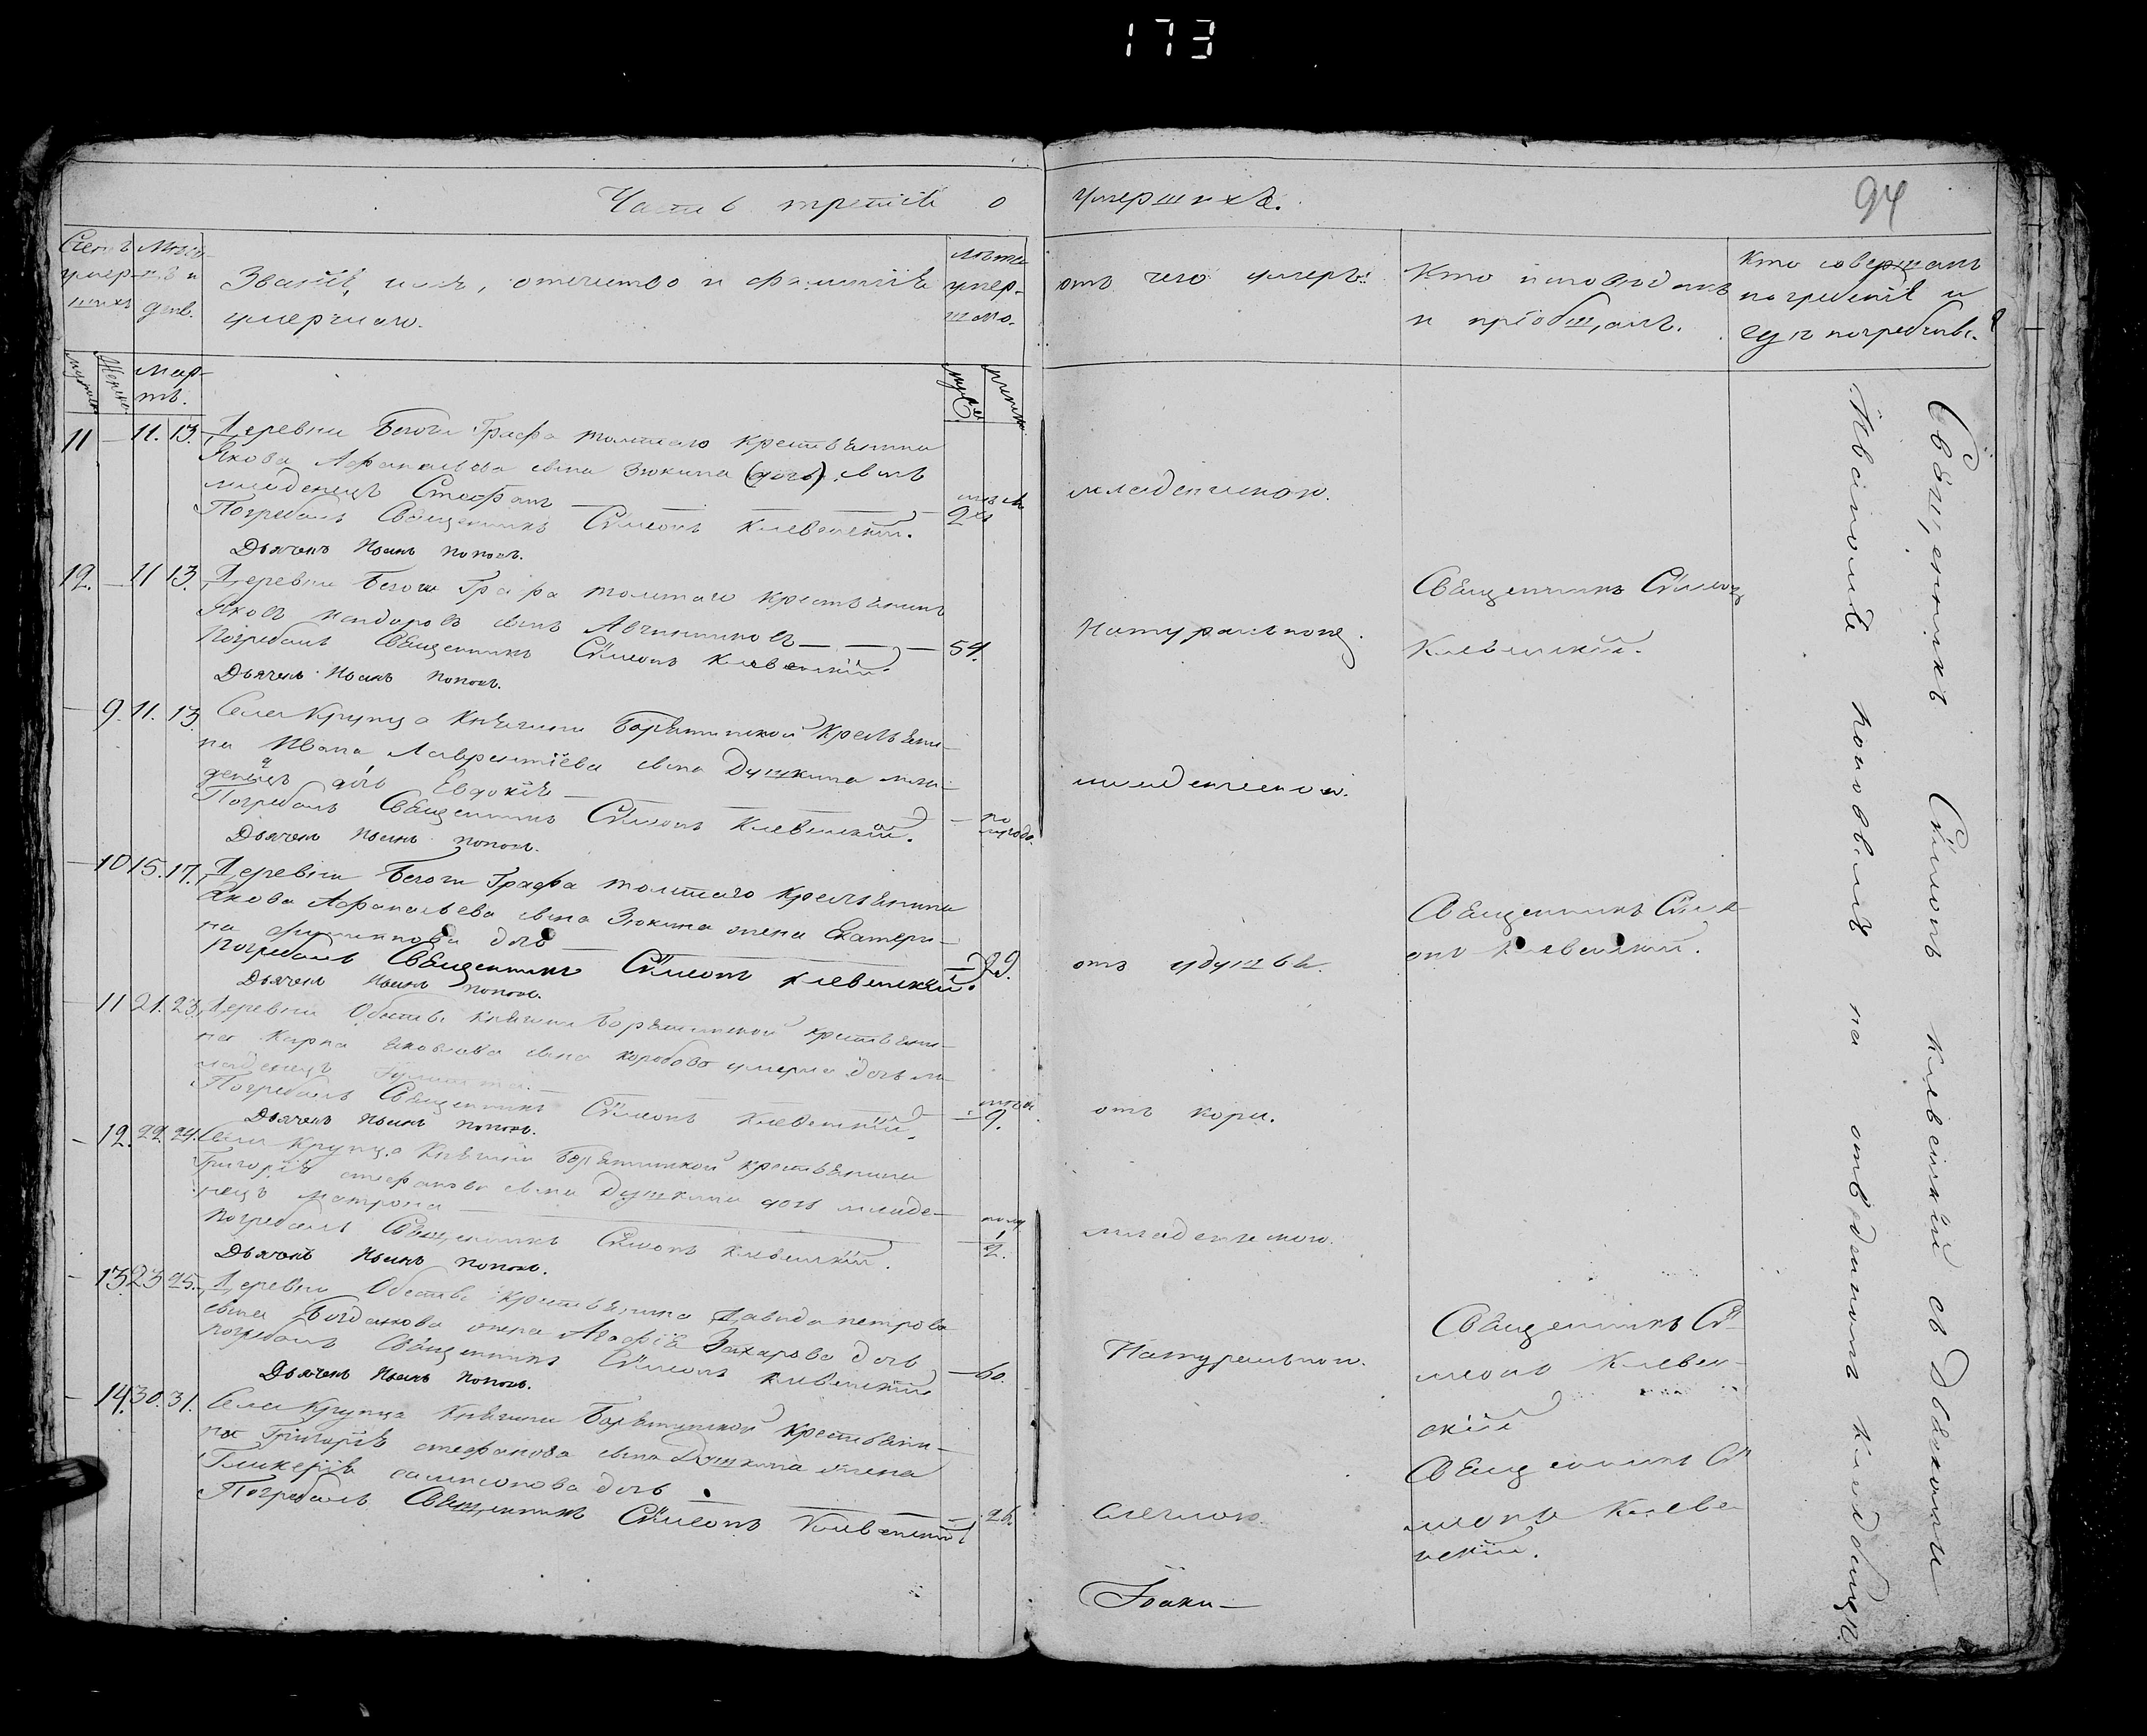 173
Часть третія о умершихъ.
94
Счетъ умер-шихъ
Мѣся-цъ и день.
Званіе, имя, отечество и фамилія
умершаго.
лѣта умер-шаго.
отъ чего умеръ.
Кто исповѣдалъ
и пріобщалъ.
Кто совершалъ
погребеніе и
гдѣ погребены.
Мар-
тъ.
11 — 11. 13. Деревни Бегоши Графа толстаго крестьянина
Якова Афанасьева сына Зюкина (дочь) сынъ
младенецъ Стефанъ
Погребалъ Священникъ Сѵмеонъ Клевенскій.
Дьячекъ Иоаннъ Поповъ.
2
младенческою.
12. — 11 13. Деревни Бегоши Графа толстаго крестьянинъ
Яковъ сынъ Авчинниковъ — — — 54.
Погребалъ Священникъ Сѵмеонъ Клевенскій.
Дьячекъ Иоаннъ Поповъ.
Натуральною.
Священникъ Сѵмеонъ
Клевенскій.
— 9. 11. 13. Села Крупца Княгини Борятинской Крестьяни-
на Ивана Лаврентіева сына Душкина мла-
денецъ дочь Евдокія —
Погребалъ Священникъ Сѵмеонъ Клевенскій.
Дьячекъ Иоаннъ Поповъ.
младенческою.
— 10 15. 17. Деревни Бегоши Графа толстаго Крестьянина
Якова Афанасьева сына Зюкина жена Екатери-
на дочь —
Погребалъ Священникъ Сѵмеонъ Клевенскій.
Дьячекъ Иоаннъ Поповъ.
отъ удушья.
Священникъ Сѵме-
онъ Клевенскій.
11 21. 23. Деревни Княгини Борятинской крестьяни-
на Карпа Яковлева сына Коробова умерла дочь м-
ладенецъ
Погребалъ Священникъ Сѵмеонъ Клевенскій.
Дьячекъ Иоаннъ Поповъ.
9.
отъ кори.
— 12. 22. 24. Села Крупца Княгини Борятинской крестьянина
Григорія стефанова сына Душкина дочь младе-
нецъ Матрона
Погребалъ Священникъ Сѵмеонъ Клевенскій.
Дьячекъ Иоаннъ Поповъ.
младенческою.
— 13 23 25. Деревни крестьянина Давида петрова
сына Богданова жена Агафія Захарова дочь
погребалъ Священникъ Сѵмеонъ Клевенскій — 60.
Дьячекъ Иоаннъ Поповъ.
Натуральною.
Священникъ Сѵ-
меонъ Клевен-
скій
— 14. 30. 31. Села Крупца Княгини Борятинской Крестьяни-
на Григорія стефанова сына Душкина жена
Гликерія самсонова дочь
Погребалъ Священникъ Сѵмеонъ Клевенскій
26.
Священникъ Сѵ
меонъ Клеве-
нскій.
Священникъ Сѵмеонъ Клевенскій съ Дьячкомъ
Иваномъ Поповымъ на отведенномъ кладбищѣ.